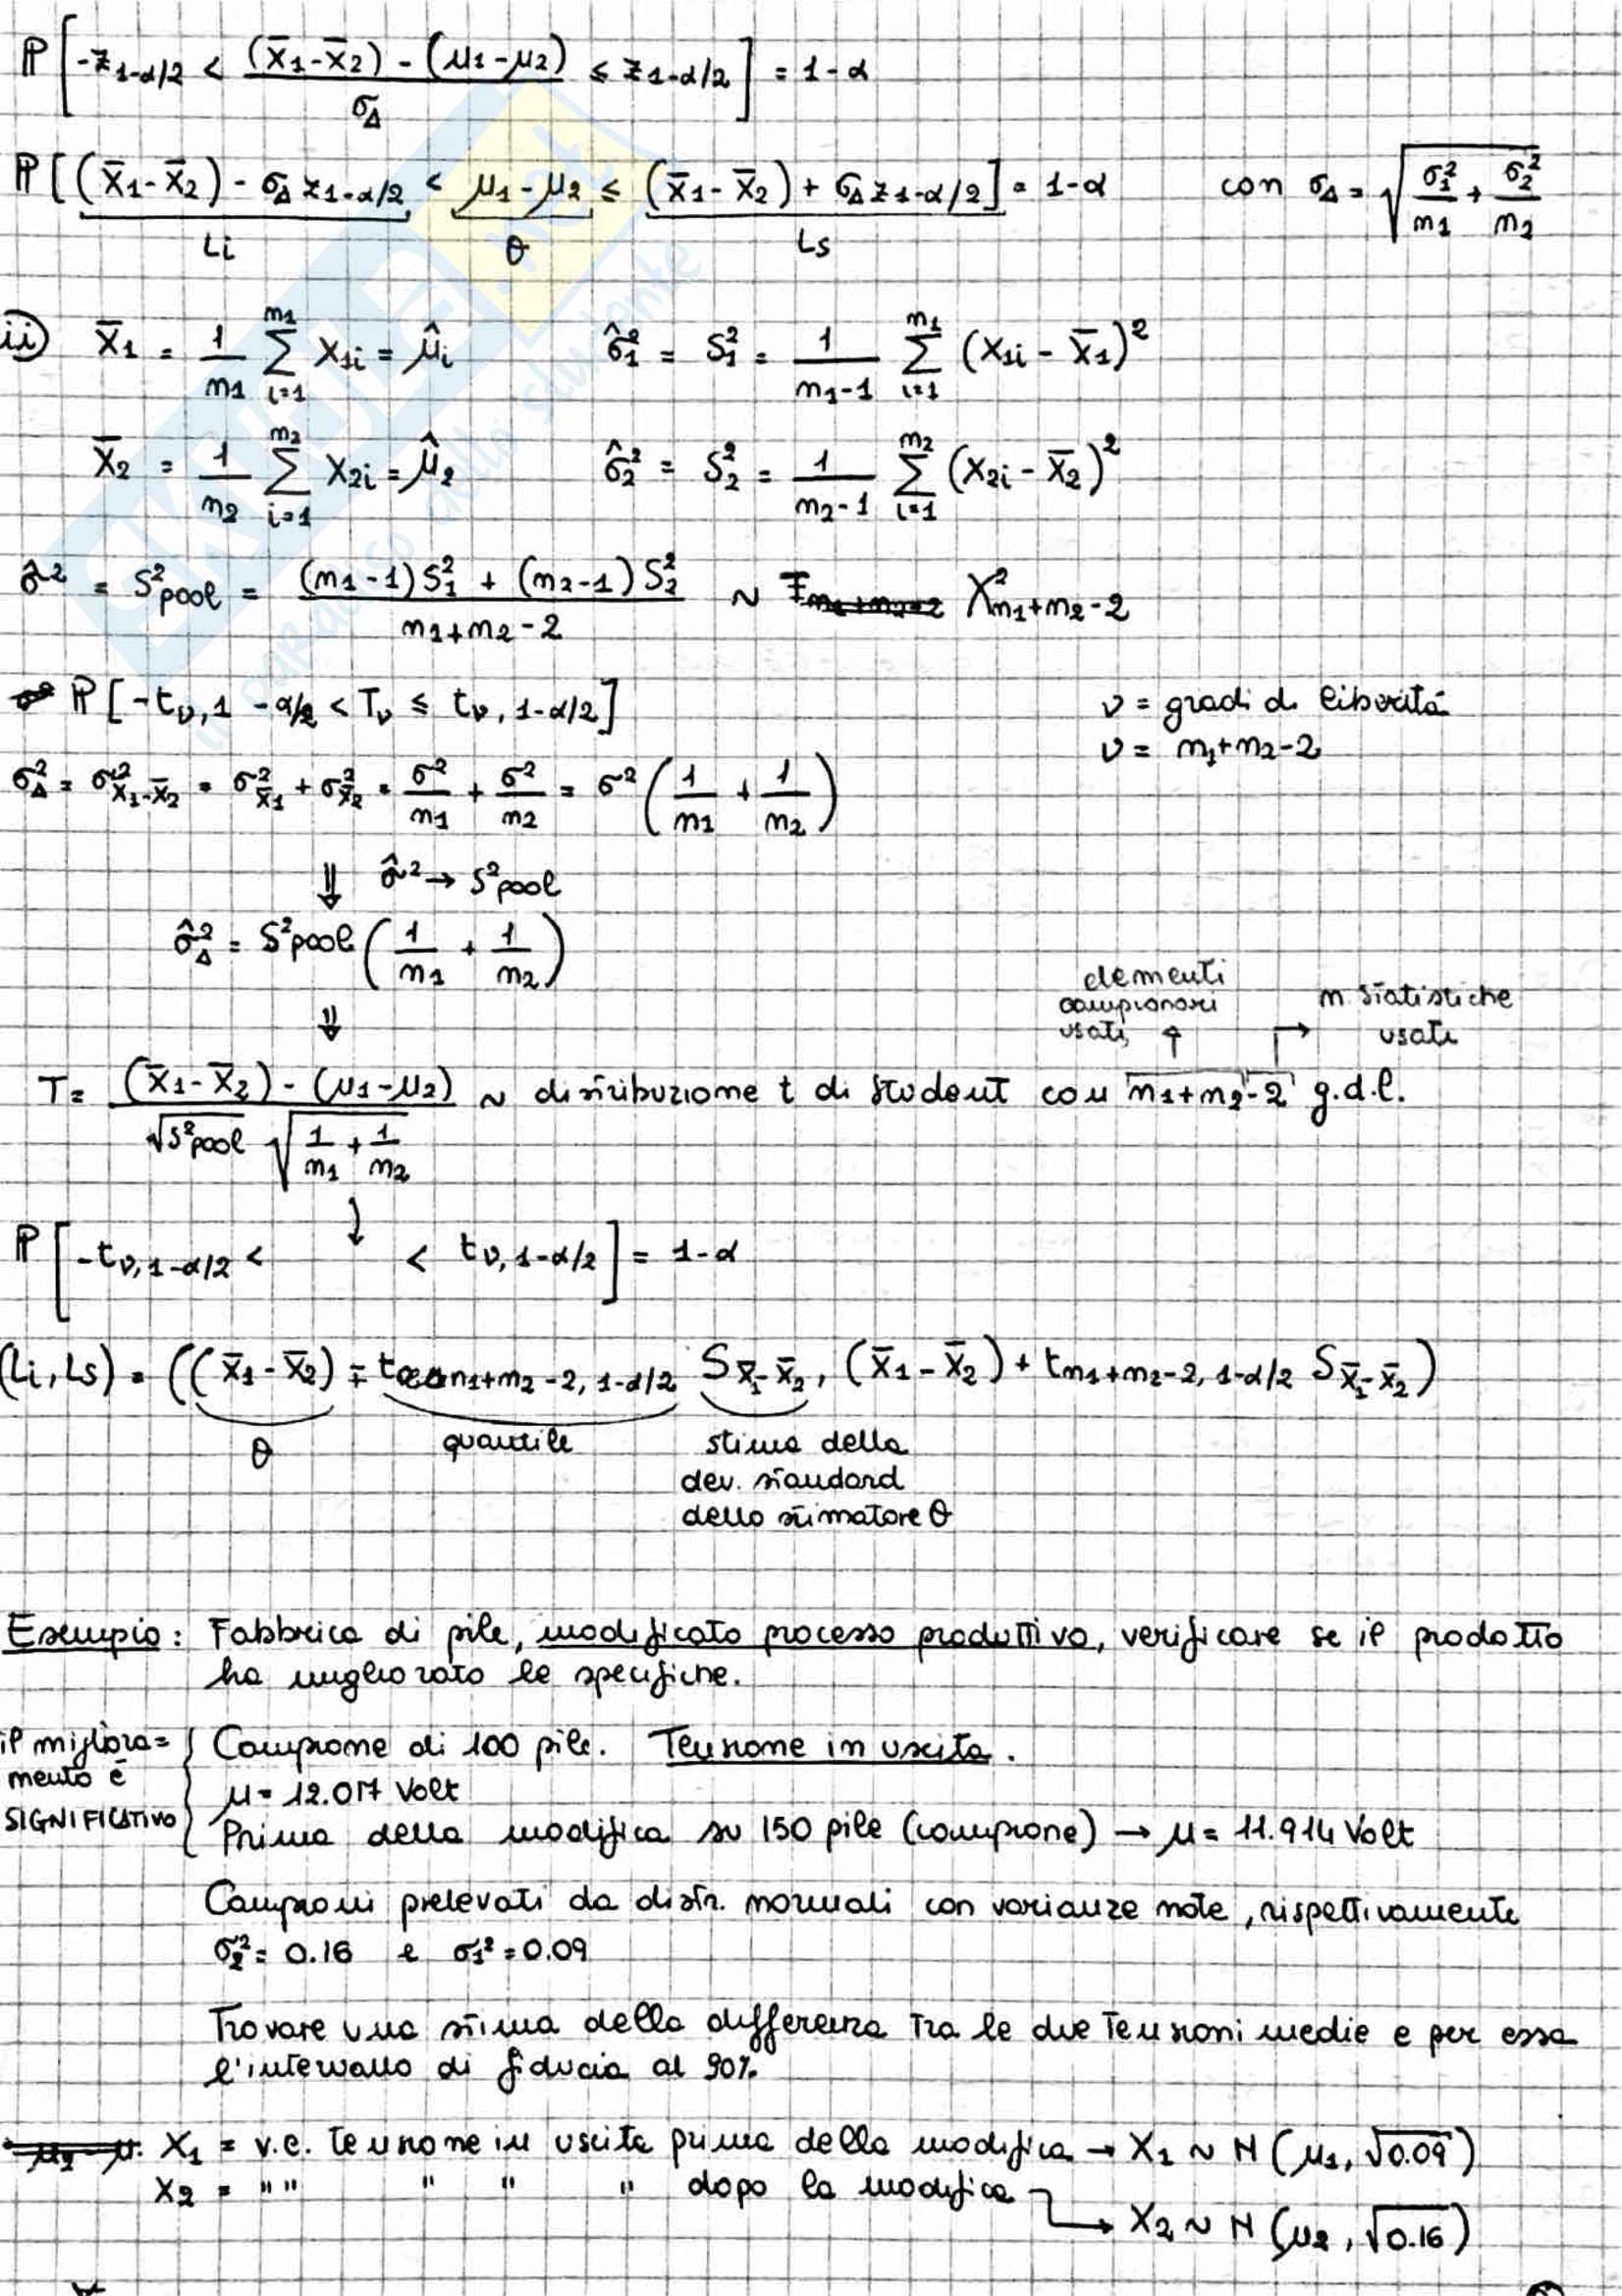 ℙ[-z_{1-α/2} < ((x̄₁-x̄₂) - (μ₁-μ₂)) / σ_Δ ≤ z_{1-α/2}] = 1-α
ℙ[(x̄₁-x̄₂) - σ_Δ z_{1-α/2} < μ₁-μ₂ ≤ (x̄₁-x̄₂) + σ_Δ z_{1-α/2}] = 1-α con σ_Δ = √(σ₁²/n₁ + σ₂²/n₂)
Li θ Ls
ii) x̄₁ = 1/n₁ Σ_{i=1}^{n₁} x₁ᵢ = μ̂ᵢ σ̂₁² = S₁² = 1/(n₁-1) Σ_{i=1}^{n₁} (x₁ᵢ - x̄₁)²
x̄₂ = 1/n₂ Σ_{i=1}^{n₂} x₂ᵢ = μ̂₂ σ̂₂² = S₂² = 1/(n₂-1) Σ_{i=1}^{n₂} (x₂ᵢ - x̄₂)²
σ̂² = S²pool = ((n₁-1)S₁² + (n₂-1)S₂²) / (n₁+n₂-2) ~ χ²_{n₁+n₂-2}
ℙ[-t_{ν,1-α/2} < T_ν ≤ t_{ν,1-α/2}] ν = gradi di libertà
ν = n₁+n₂-2
σ_Δ² = σ²_{x̄₁-x̄₂} = σ²_{x̄₁} + σ²_{x̄₂} = σ²/n₁ + σ²/n₂ = σ²(1/n₁ + 1/n₂)
⇓ σ̂² → S²pool
σ̂_Δ² = S²pool(1/n₁ + 1/n₂)
elementi campionari usati ↑ n. statistiche usate
⇓
T = ((x̄₁-x̄₂) - (μ₁-μ₂)) / (√S²pool √(1/n₁ + 1/n₂)) ~ distribuzione t di Student con n₁+n₂-2 g.d.l.
ℙ[-t_{ν,1-α/2} < ↓ < t_{ν,1-α/2}] = 1-α
(Li, Ls) = ((x̄₁-x̄₂) - t_{n₁+n₂-2, 1-α/2} S_{x̄₁-x̄₂}, (x̄₁-x̄₂) + t_{n₁+n₂-2, 1-α/2} S_{x̄₁-x̄₂})
θ quantile stima della
dev. standard
dello stimatore θ
Esempio: Fabbrica di pile, modificato processo produttivo, verificare se il prodotto
ha migliorato le specifiche.
il migliora=
mento è
SIGNIFICATIVO
Campione di 100 pile. Tensione in uscita.
μ = 12.017 Volt
Prima della modifica su 150 pile (campione) → μ = 11.914 Volt
Campioni prelevati da distr. normali con varianze note, rispettivamente
σ₂² = 0.16 e σ₁² = 0.09
Trovare una stima della differenza tra le due tensioni medie e per essa
l'intervallo di fiducia al 90%.
X₁ = v.c. tensione in uscita prima della modifica → X₁ ~ N(μ₁, √0.09)
X₂ = " " " " " dopo la modifica
→ X₂ ~ N(μ₂, √0.16)
SKUOLA.net
il paradiso dello studente